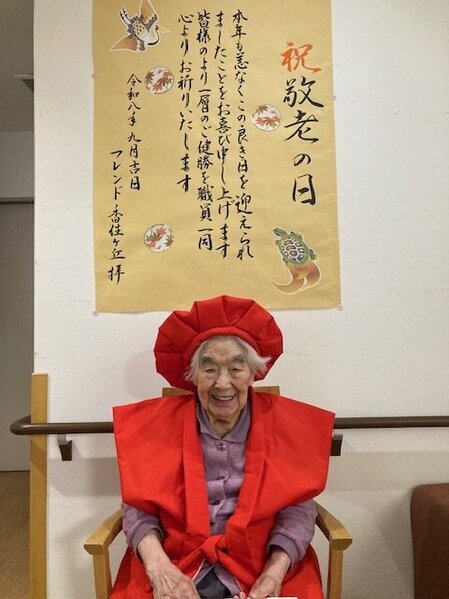 祝 敬老の日
本年も恙なくこの良き日を迎えられ
ましたことをお喜び申し上げます
皆様のより一層のご健勝を職員一同
心よりお祈りいたします
令和八年 九月吉日
フレンド香住ヶ丘 拝